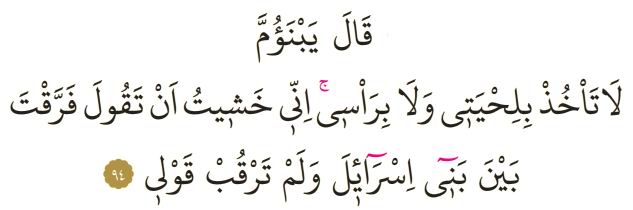 قَالَ يَبْنَؤُمَّ
لَا تَأْخُذْ بِلِحْيَتٖى وَلَا بِرَاْسٖىۚ اِنّٖى خَشٖيتُ اَنْ تَقُولَ فَرَّقْتَ
بَيْنَ بَنٖٓى اِسْرَٓائٖلَ وَلَمْ تَرْقُبْ قَوْلٖى ٩٤